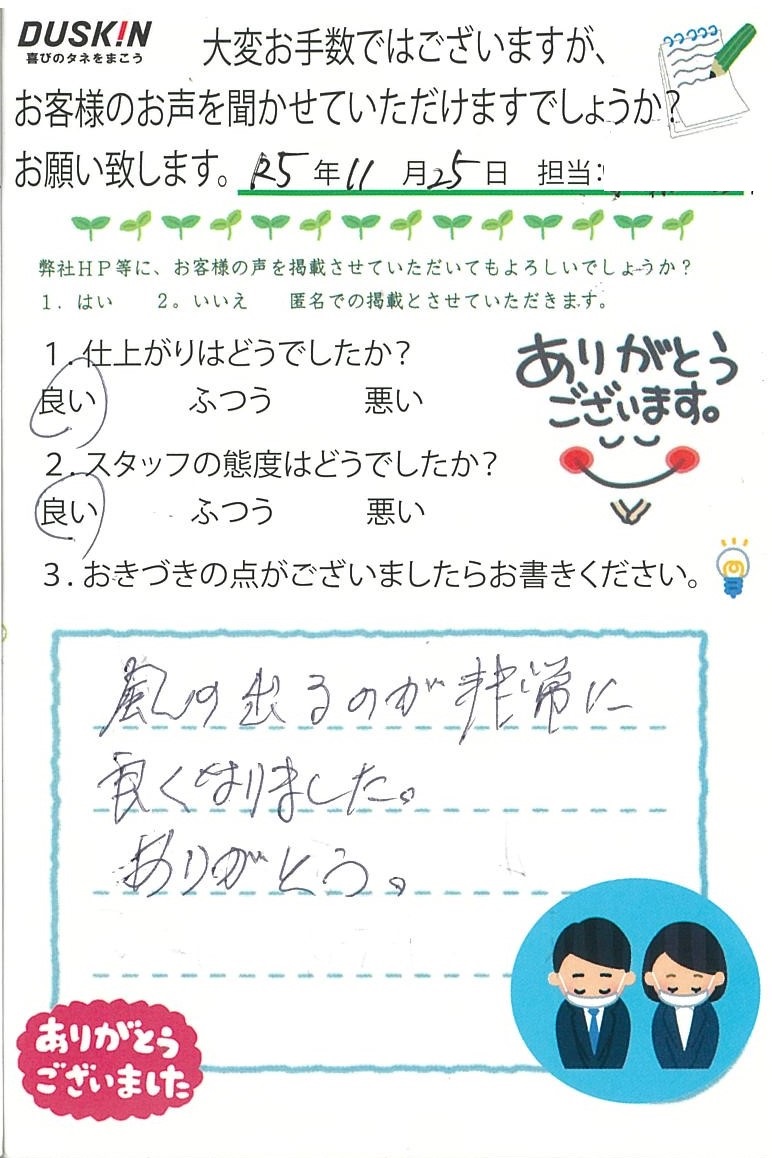 DUSK!N
喜びのタネをまこう
大変お手数ではございますが、
お客様のお声を聞かせていただけますでしょうか?
お願い致します。 R5 年 11 月 25 日 担当:
弊社HP等に、お客様の声を掲載させていただいてもよろしいでしょうか?
1. はい 2。いいえ 匿名での掲載とさせていただきます。
1.仕上がりはどうでしたか?
良い ふつう 悪い
ありがとう
ございます。
2.スタッフの態度はどうでしたか?
良い ふつう 悪い
3.おきづきの点がございましたらお書きください。
風の出るのが非常に
良くなりました。
ありがとう。
ありがとう
ございました